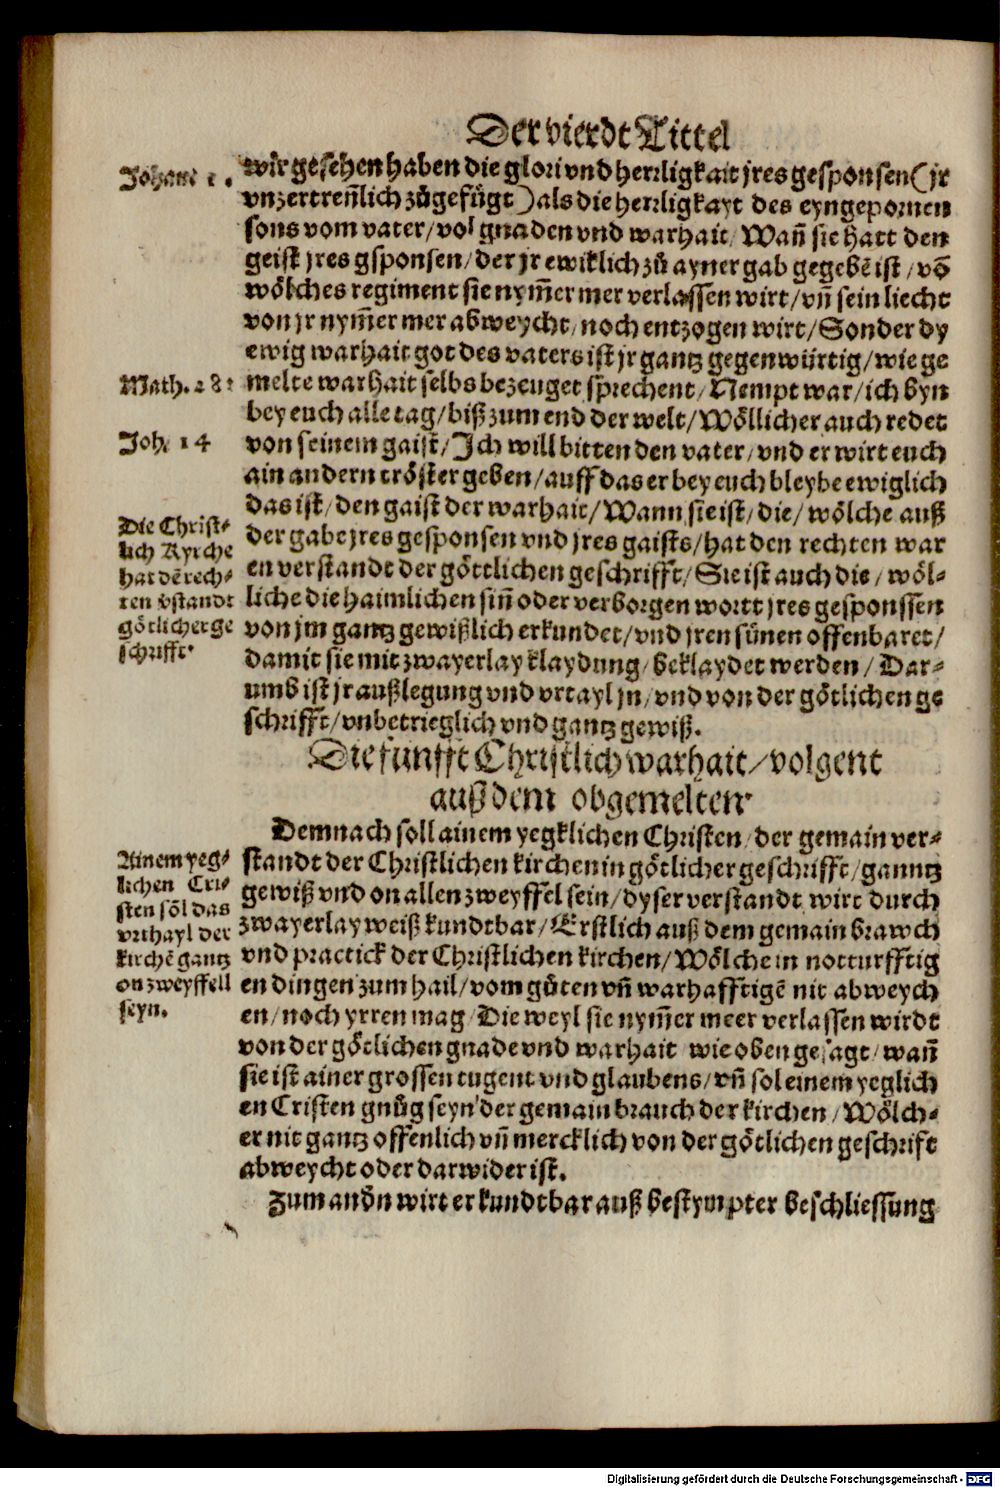 Der vierdt Tittel
Johan. 1.
wir gesehen haben die glori vnd herrligkait jres gesponsen (jr
vnzertren̄lich zůgefügt) als die herrligkayt des eyngepornen
sons vom vater/ vol gnaden vnd warhait/ Wan̄ sie hatt den
geist jres gsponsen/ der jr ewiklich zů ayner gab gegebē ist/ vō
wölches regiment sie nym̄er mer verlassen wirt/ vn̄ sein liecht
von jr nym̄er mer abweycht/ noch entzogen wirt/ Sonder dy
ewig warhait got des vaters ist jr gantz gegenwürtig/ wie ge
Math. 28:
melte warhait selbs bezeuget sprechent/ Nempt war/ ich byn
bey euch alle tag/ biß zum end der welt/ Wöllicher auch redet
Joh. 14
von seinem gaist/ Ich will bitten den vater/ vnd er wirt euch
ain andern tröster geben/ auff das er bey euch bleybe ewiglich
das ist/ den gaist der warhait/ Wann sie ist/ die/ wölche auß
Die Christ-
lich Kyrche
hat dē rech-
ten vstandt
götlicher ge
schrifft.
der gabe jres gesponsen vnd jres gaists/ hat den rechten war
en verstandt der göttlichen geschrifft/ Sie ist auch die/ wöl-
liche die haimlichen sin̄ oder verborgen wortt jres gesponssen
von jm gantz gewißlich erkundet/ vnd jren sünen offenbaret/
damit sie mit zwayerlay klaydung/ beklaydet werden/ Dar-
umb ist jr außlegung vnd vrtayl jn/ vnd von der götlichen ge
schrifft/ vnbetrieglich vnd gantz gewiß.
Die funfft Christlich warhait/ volgent
auß dem obgemelten
Demnach soll ainem yegklichen Christen/ der gemain ver-
Ainem yeg-
lichen Cri-
sten sol das
vrthayl der
kirchē gantz
on zweyffell
seyn.
standt der Christlichen kirchen in götlicher geschrifft/ ganntz
gewiß vnd on allen zweyffel sein/ dyser verstandt wirt durch
zwayerlay weiß kundtbar/ Erstlich auß dem gemain brawch
vnd practick der Christlichen kirchen/ Wölche in notturfftig
en dingen zum hail/ vom gůten vn̄ warhafftigē nit abweych
en/ noch yrren mag/ Die weyl sie nym̄er meer verlassen wirdt
von der götlichen gnade vnd warhait/ wie oben gesagt/ wan̄
sie ist ainer grossen tugent vnd glaubens/ vn̄ sol einem yeglich
en Cristen gnůg seyn der gemain brauch der kirchen/ Wölch-
er nit gantz offenlich vn̄ mercklich von der götlichen geschrift
abweycht oder darwider ist.
Zum andn̄ wirt er kundtbar auß bestympter beschliessung
Digitalisierung gefördert durch die Deutsche Forschungsgemeinschaft - DFG